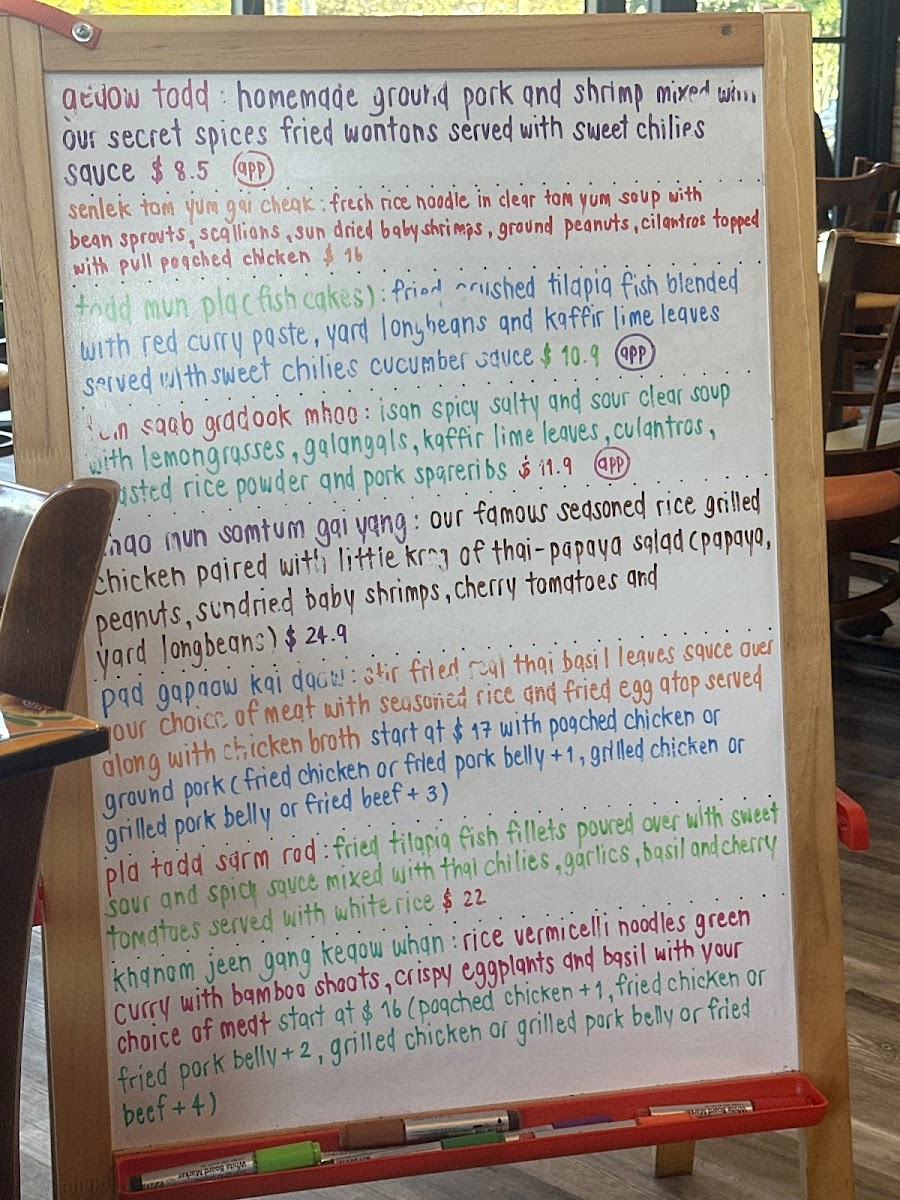 gedow todd : homemade ground pork and shrimp mixed with
our secret spices fried wontons served with sweet chilies
sauce $ 8.5 app
senlek tom yum gai cheak : fresh rice noodle in clear tom yum soup with
bean sprouts, scallions, sun dried baby shrimps, ground peanuts, cilantros topped
with pull poached chicken $ 16
todd mun pla (fish cakes) : fried crushed tilapia fish blended
with red curry paste, yard longbeans and kaffir lime leaves
served with sweet chilies cucumber sauce $ 10.9 app
saab gradook mhoo : isan spicy salty and sour clear soup
with lemongrasses, galangals, kaffir lime leaves, culantros,
rice powder and pork spareribs $ 11.9 app
mun somtum gai yang : our famous seasoned rice grilled
chicken paired with little krog of thai-papaya salad (papaya,
peanuts, sundried baby shrimps, cherry tomatoes and
yard longbeans) $ 24.9
pad gapaow kai daow : stir fried real thai basil leaves sauce over
your choice of meat with seasoned rice and fried egg atop served
along with chicken broth start at $ 17 with poached chicken or
ground pork (fried chicken or fried pork belly +1, grilled chicken or
grilled pork belly or fried beef + 3)
pla todd sarm rod : fried tilapia fish fillets poured over with sweet
sour and spicy sauce mixed with thai chilies, garlics, basil and cherry
tomatoes served with white rice $ 22
khanom jeen gang keaow whan : rice vermicelli noodles green
curry with bamboo shoots, crispy eggplants and basil with your
choice of meat start at $ 16 (poached chicken +1, fried chicken or
fried pork belly + 2, grilled chicken or grilled pork belly or fried
beef + 4)
White Board Marker
White Board Marker